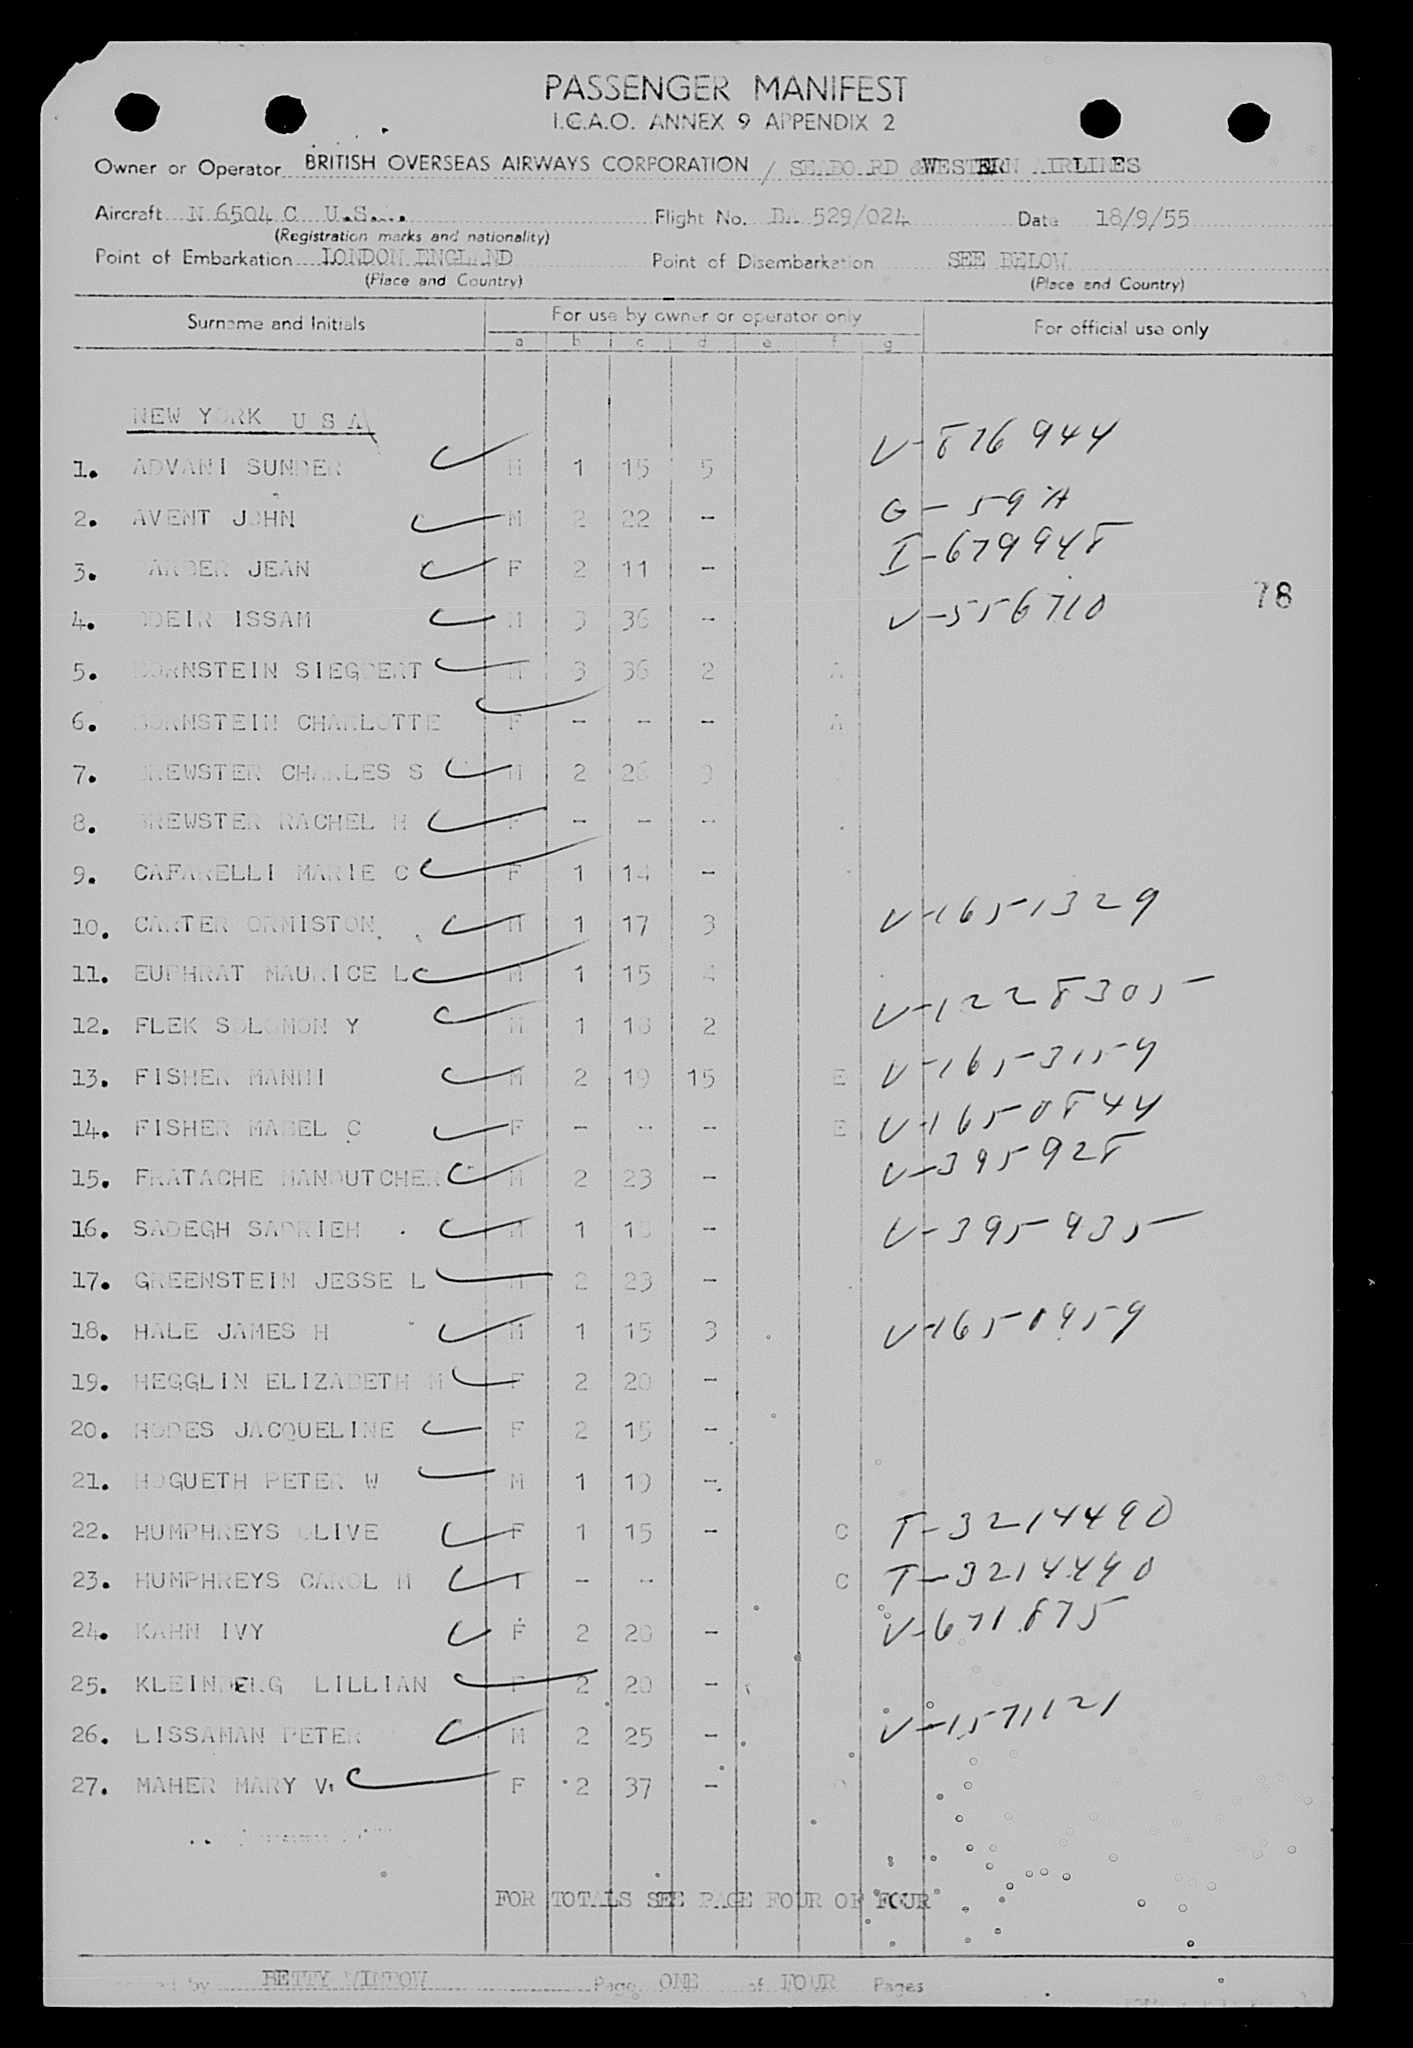 PASSENGER MANIFEST
I.C.A.O. ANNEX 9 APPENDIX 2
Owner or Operator BRITISH OVERSEAS AIRWAYS CORPORATION / SEABO RD &WESTERN AIRLINES
Aircraft N 6504 C U.S. Flight No. BA 529/024 Date 18/9/55
(Registration marks and nationality)
Point of Embarkation LONDON ENGLAND Point of Disembarkation SEE BELOW
(Place and Country) (Place and Country)
Surname and Initials For use by owner or operator only For official use only
a b c d e f g
NEW YORK U S A
1. ADVANI SUNDER M 1 15 5 V-876944
2. AVENT JOHN M 2 22 - G-59A
3. JEAN F 2 11 - I-679948
4. ISSAM M 3 36 - V-556710
78
5. BORNSTEIN SIEGBERT M 3 36 2 A
6. BORNSTEIN CHARLOTTE F - - - A
7. BREWSTER CHARLES S M 2 26
8. BREWSTER RACHEL H F - - -
9. CAFARELLI MARIE C F 1 14 -
10. CARTER ORMISTON M 1 17 3 V-1651329
11. EUPHRAT MAURICE L M 1 15 4
12. FLEK SOLOMON Y M 1 18 2 V-1228305
13. FISHER MANNI M 2 19 15 E V-1653159
14. FISHER MABEL C F - - - E V-1650844
15. FRATACHE MANOUTCHER M 2 23 - V-395928
16. SADEGH SADRIEH M 1 - V-395935
17. GREENSTEIN JESSE L M 2 23 -
18. HALE JAMES H M 1 15 3 V-1650959
19. HEGGLIN ELIZABETH M F 2 20 -
20. HODES JACQUELINE F 2 15 -
21. HOGUETH PETER W M 1 19 -
22. HUMPHREYS OLIVE F 1 15 - C T-3214490
23. HUMPHREYS CAROL M I - - C T-3214490
24. KAHN IVY F 2 20 - V-671875
25. KLEINBERG LILLIAN F 2 20 -
26. LISSAMAN PETER M 2 25 - V-1571121
27. MAHER MARY V. F 2 37 -
FOR TOTALS SEE PAGE FOUR OF FOUR
by BETTY Page ONE of FOUR Pages